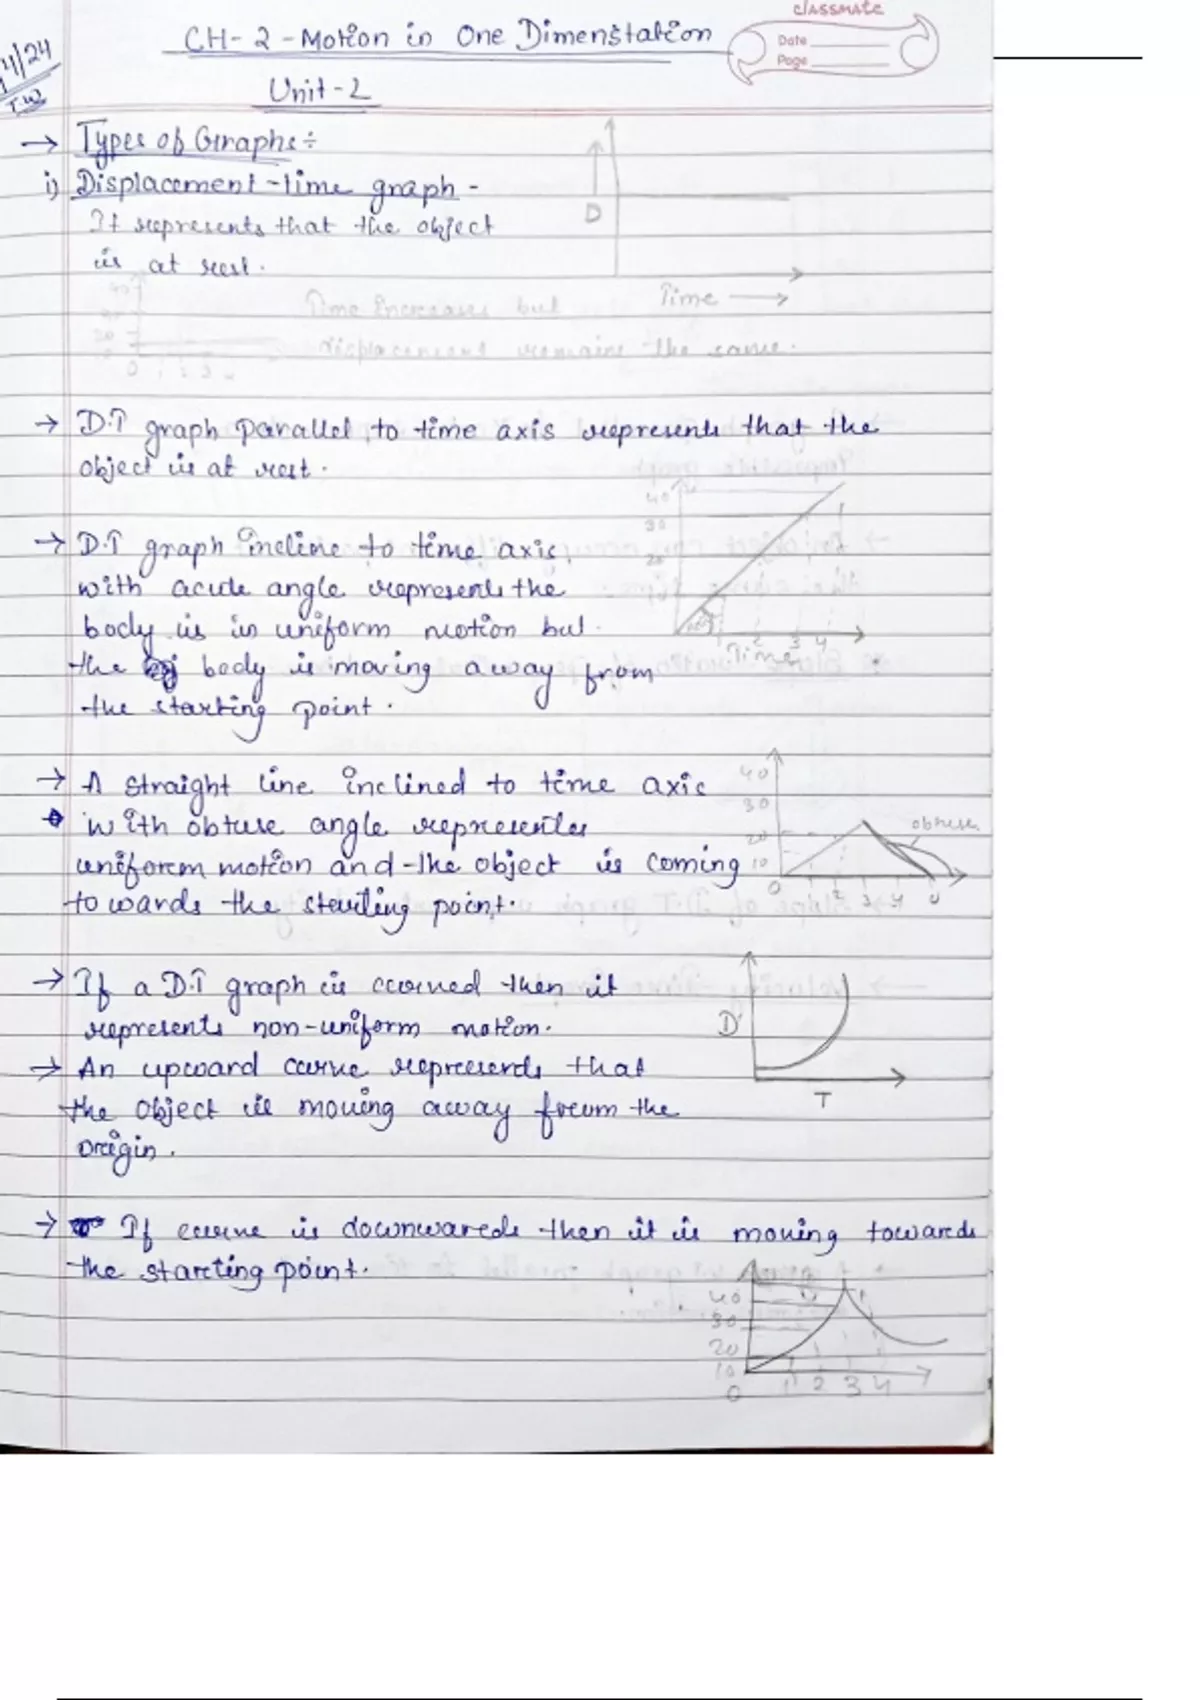 classmate
Date
Page
4/24
T.W
CH- 2 - Motion in One Dimenstation
Unit - 2
→ Types of Graphs ÷
i) Displacement - time graph -
It represents that the object
is at rest.
D
Time →
Time Increases but
displacement remains the same.
40
20
0 1 2 3
→ D.T graph parallel to time axis represents that the
object is at rest.
→ D.T graph incline to time axis
with acute angle represents the
body is in uniform motion but
the body is moving away from
the starting point.
40
30
20
1 2 3 4
Time
→ A straight line inclined to time axis
with obtuse angle represents
uniform motion and the object is coming
towards the starting point.
40
30
20
10
0 1 2 3 4
obtuse
→ If a D.T graph is curved then it
represents non-uniform motion.
→ An upward curve represents that
the object is moving away from the
origin.
D
T
→ If curve is downwards then it is moving towards
the starting point.
40
30
20
10
0 1 2 3 4